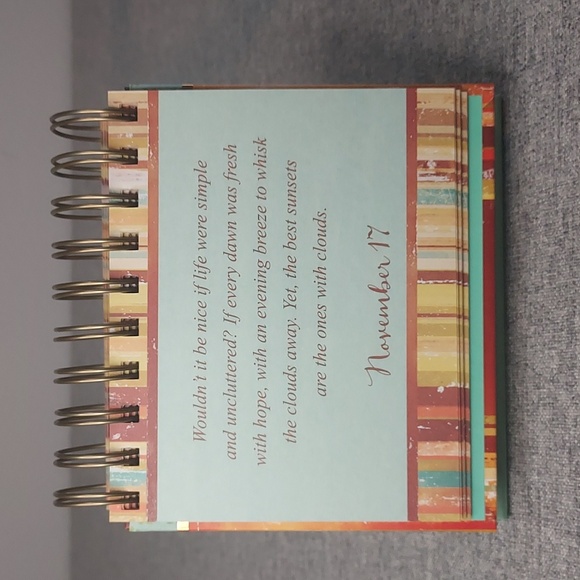 Wouldn't it be nice if life were simple
and uncluttered? If every dawn was fresh
with hope, with an evening breeze to whisk
the clouds away. Yet, the best sunsets
are the ones with clouds.
November 17